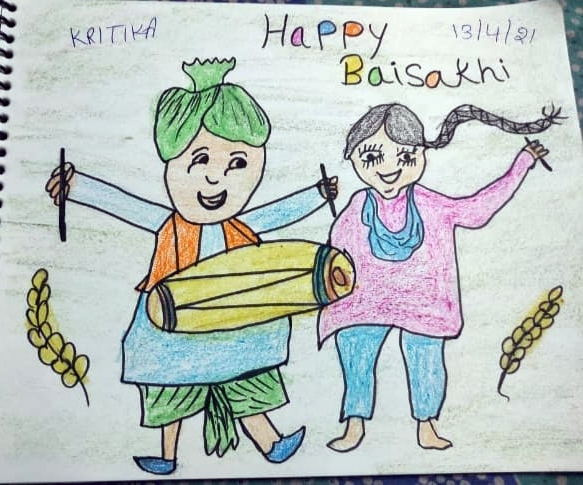 KRITIKA
Happy
13/4/21
Baisakhi